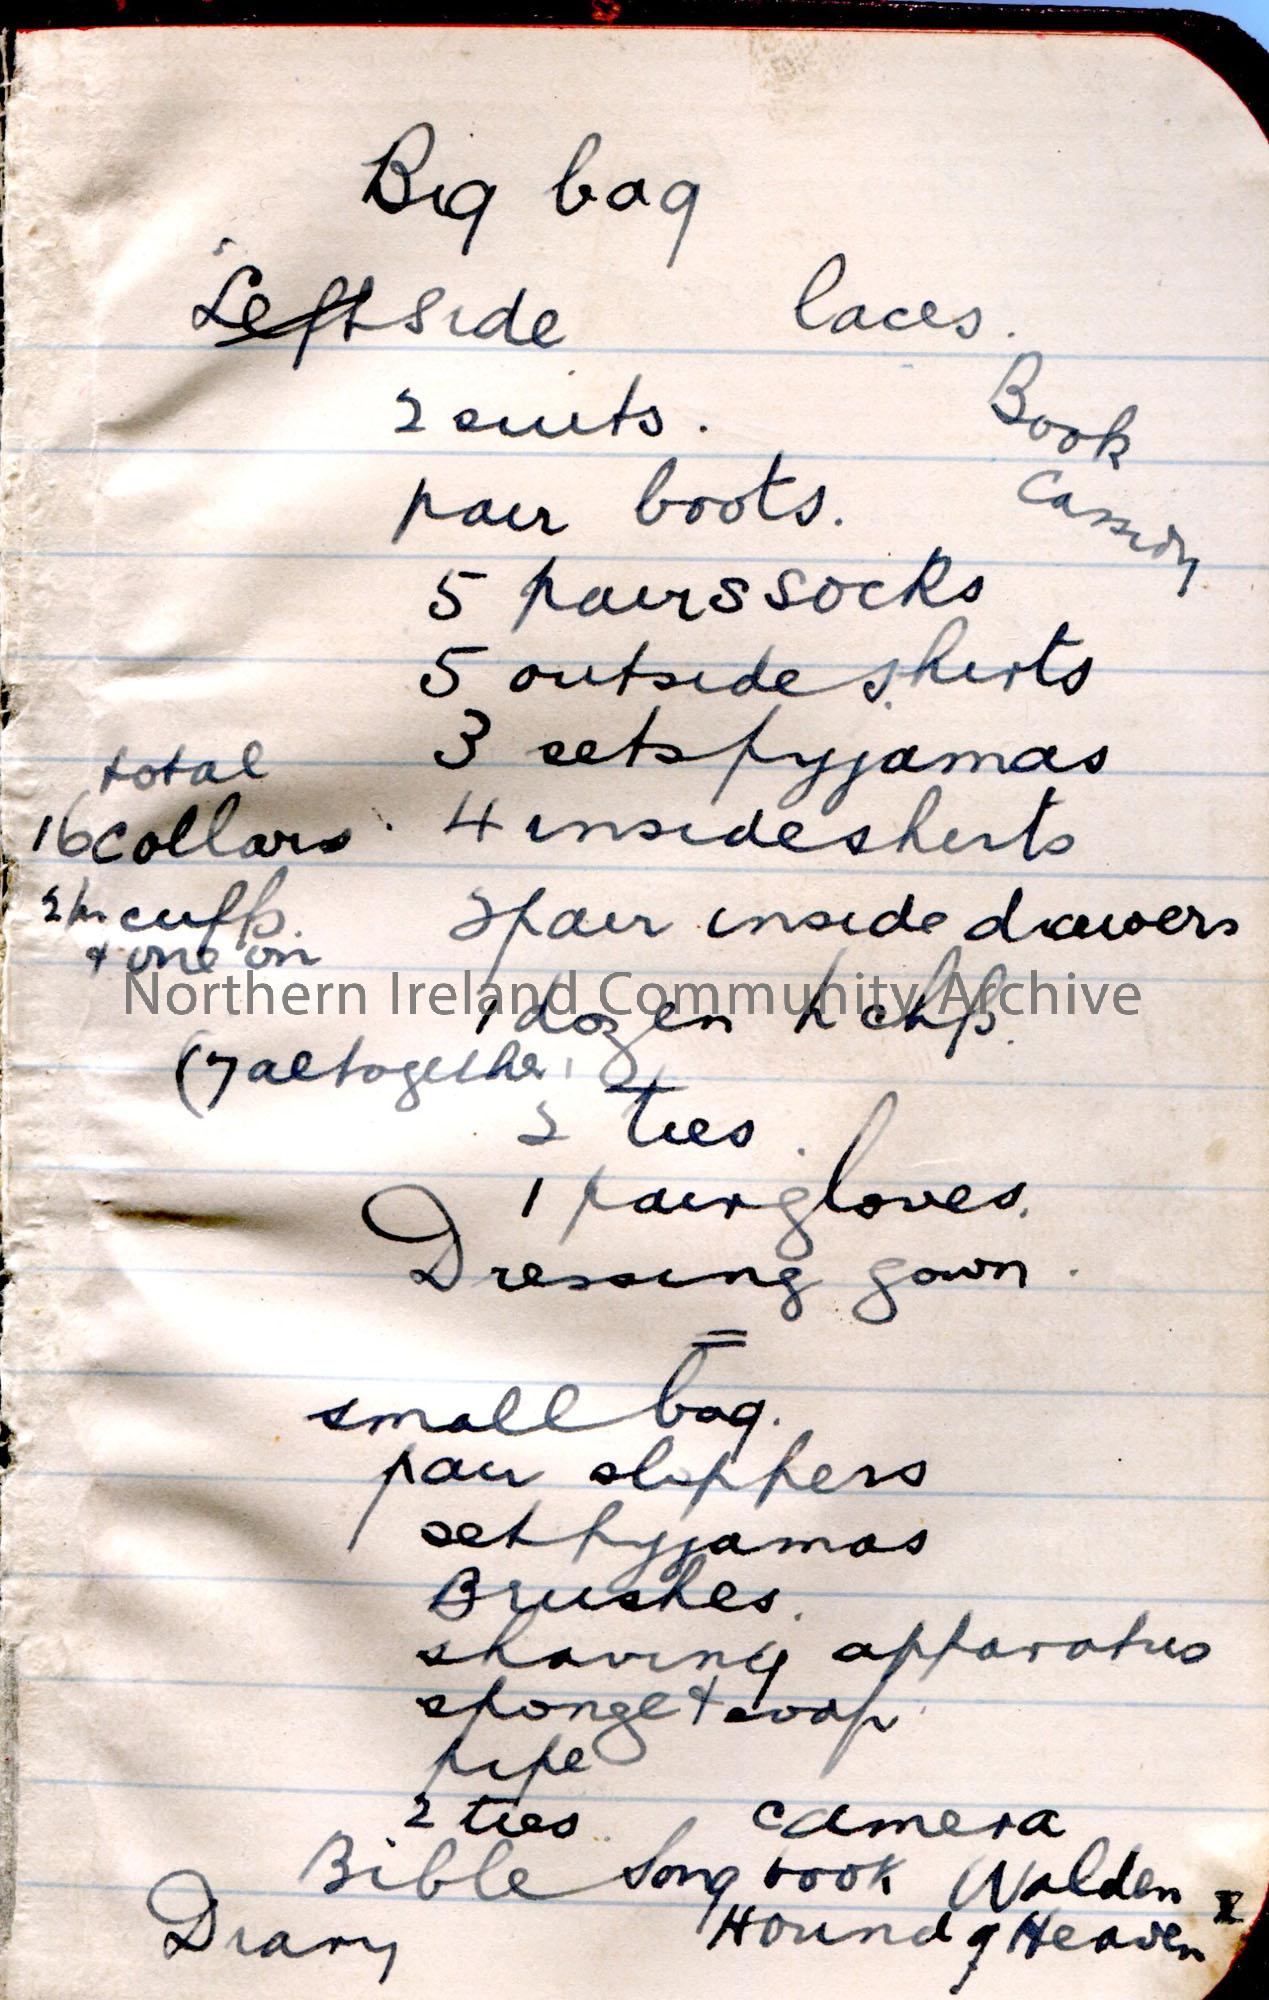 Big bag
Left Side laces.
2 suits.
Book
pair boots.
Cassidy
5 pairs socks
5 outside shirts
3 sets pyjamas
total
16 collars. 4 inside shirts
2 pr. cuffs. 2 pair inside drawers
+ one on
Northern Ireland Community Archive
1 dozen h chfs.
(7 altogether
2 ties.
1 pair gloves.
Dressing gown.
small bag.
pair slippers
set pyjamas
Brushes.
shaving apparatus
sponge + soap
pipe
2 ties. camera
Bible Song book Walden
Diary Hound of Heaven